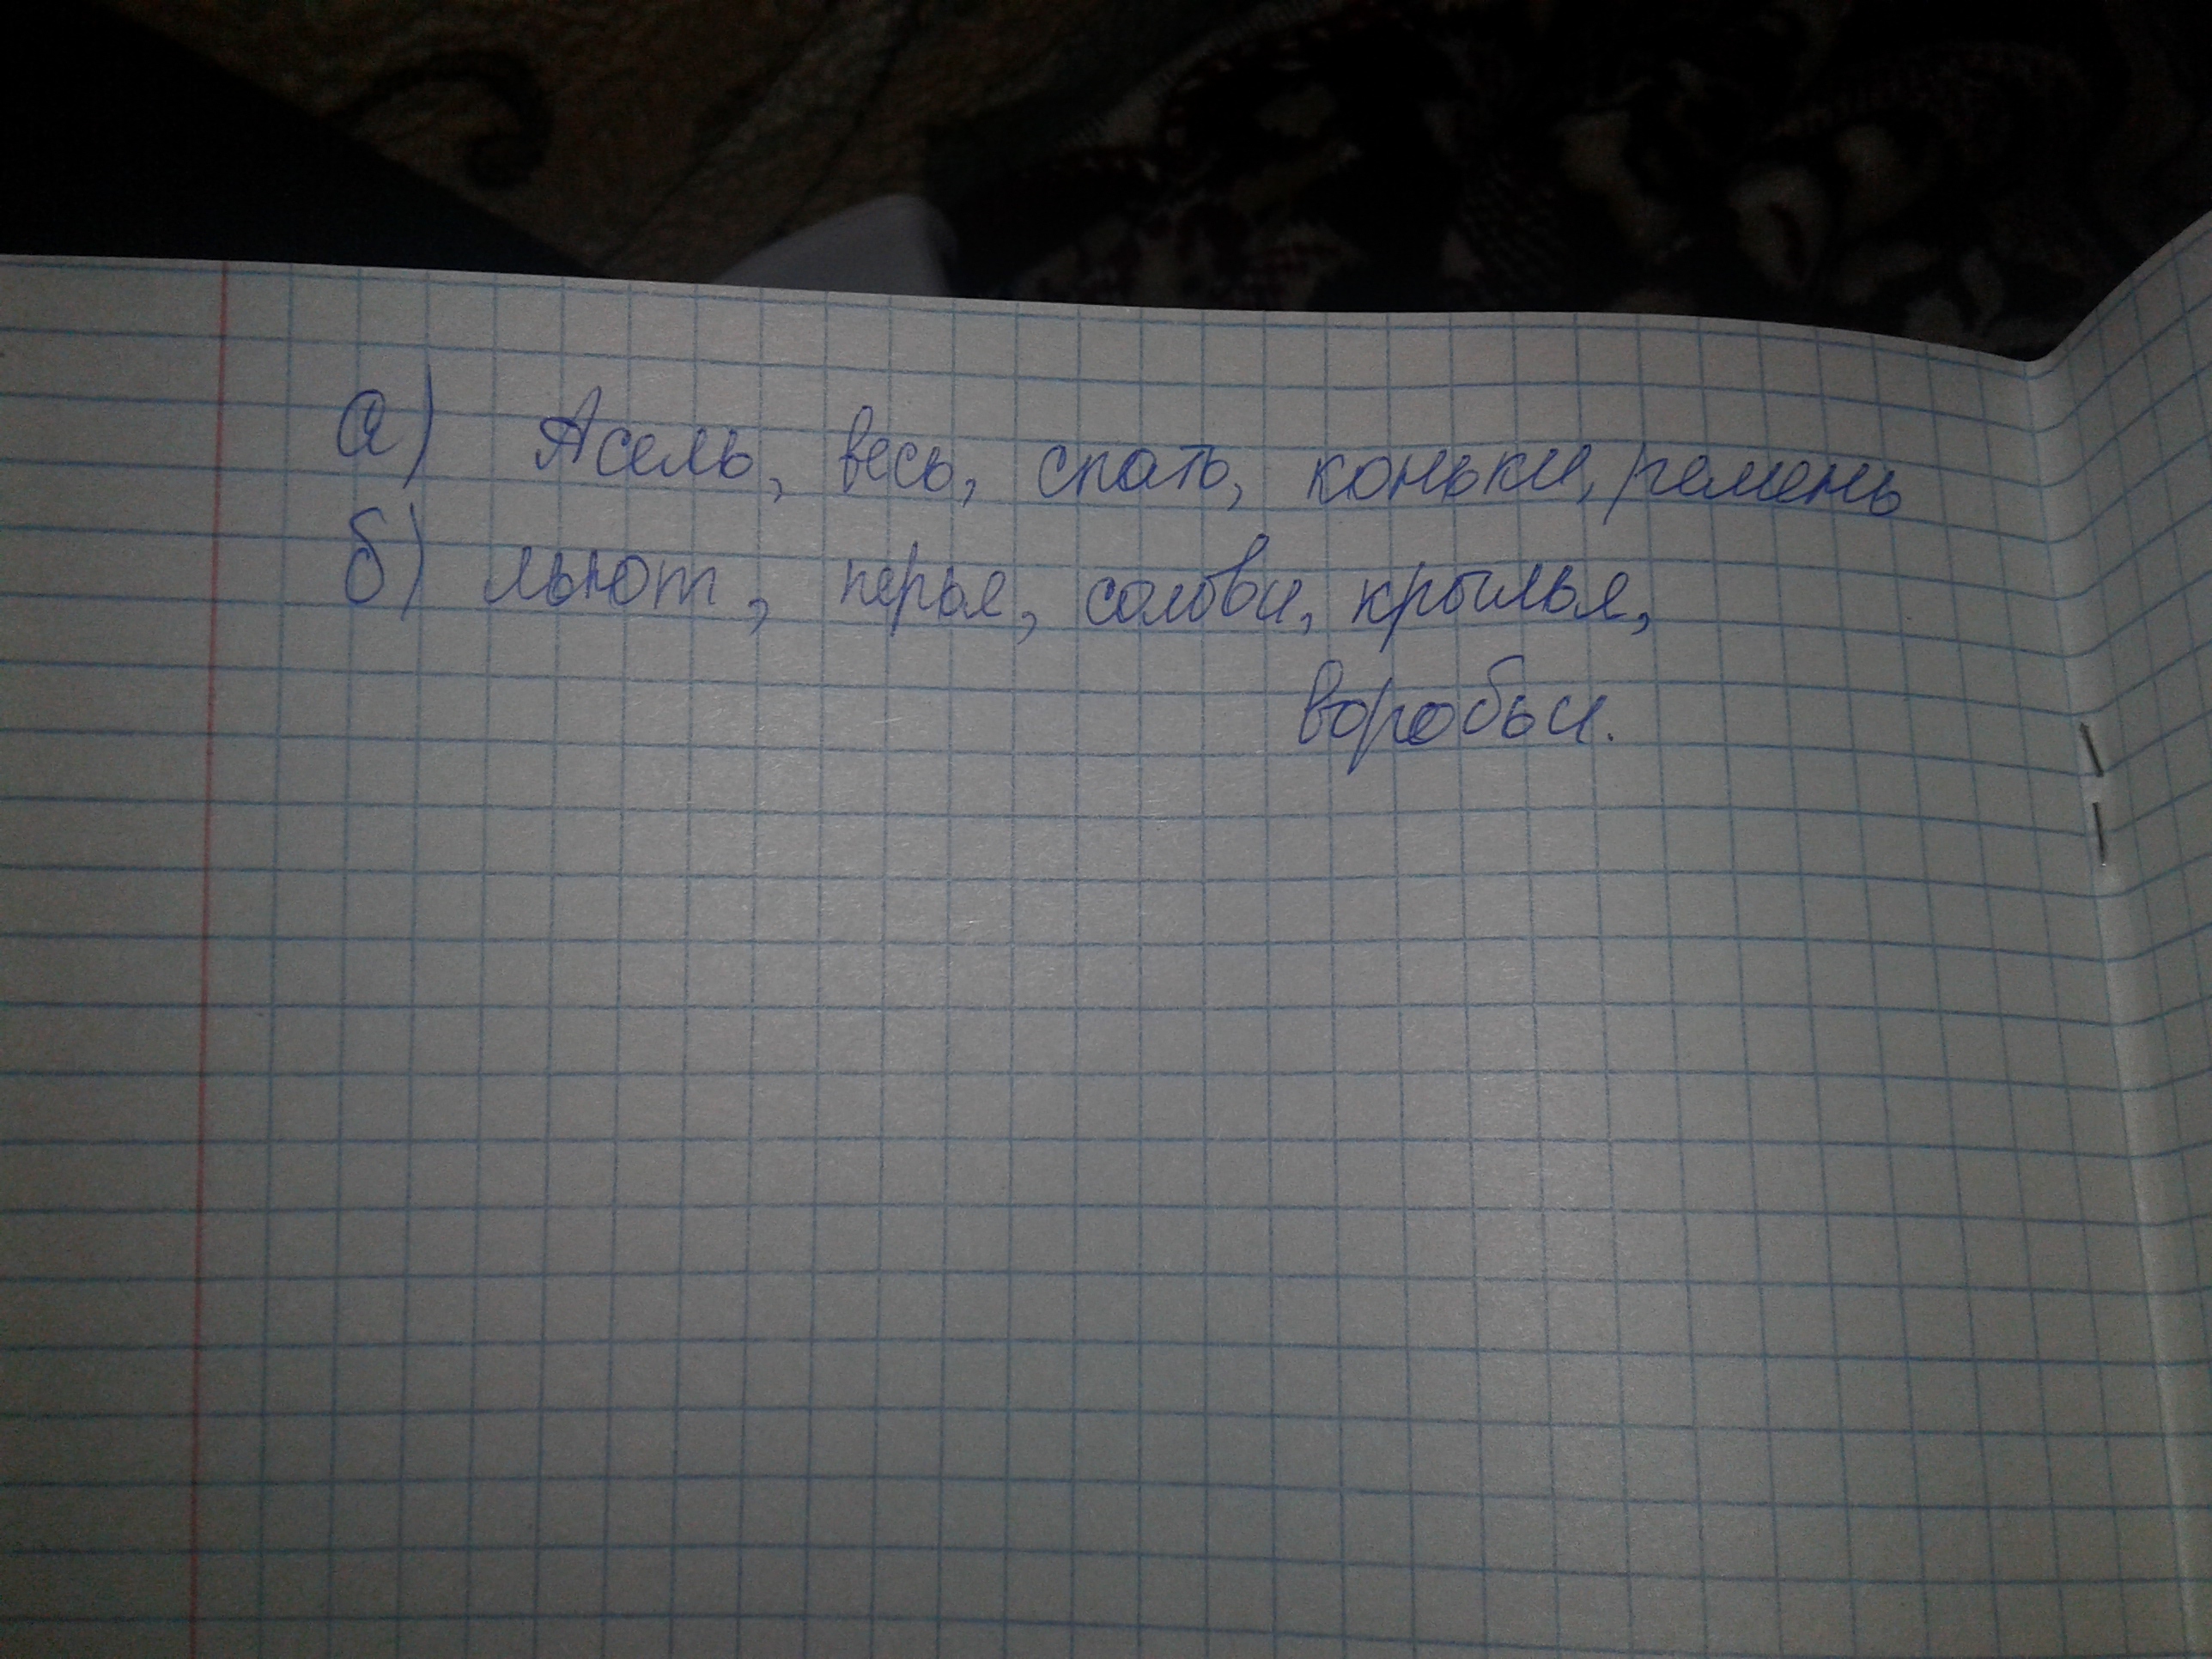 а) Асель, весь, спать, коньки, ремень
б) льют, перья, соловьи, крылья,
воробьи.